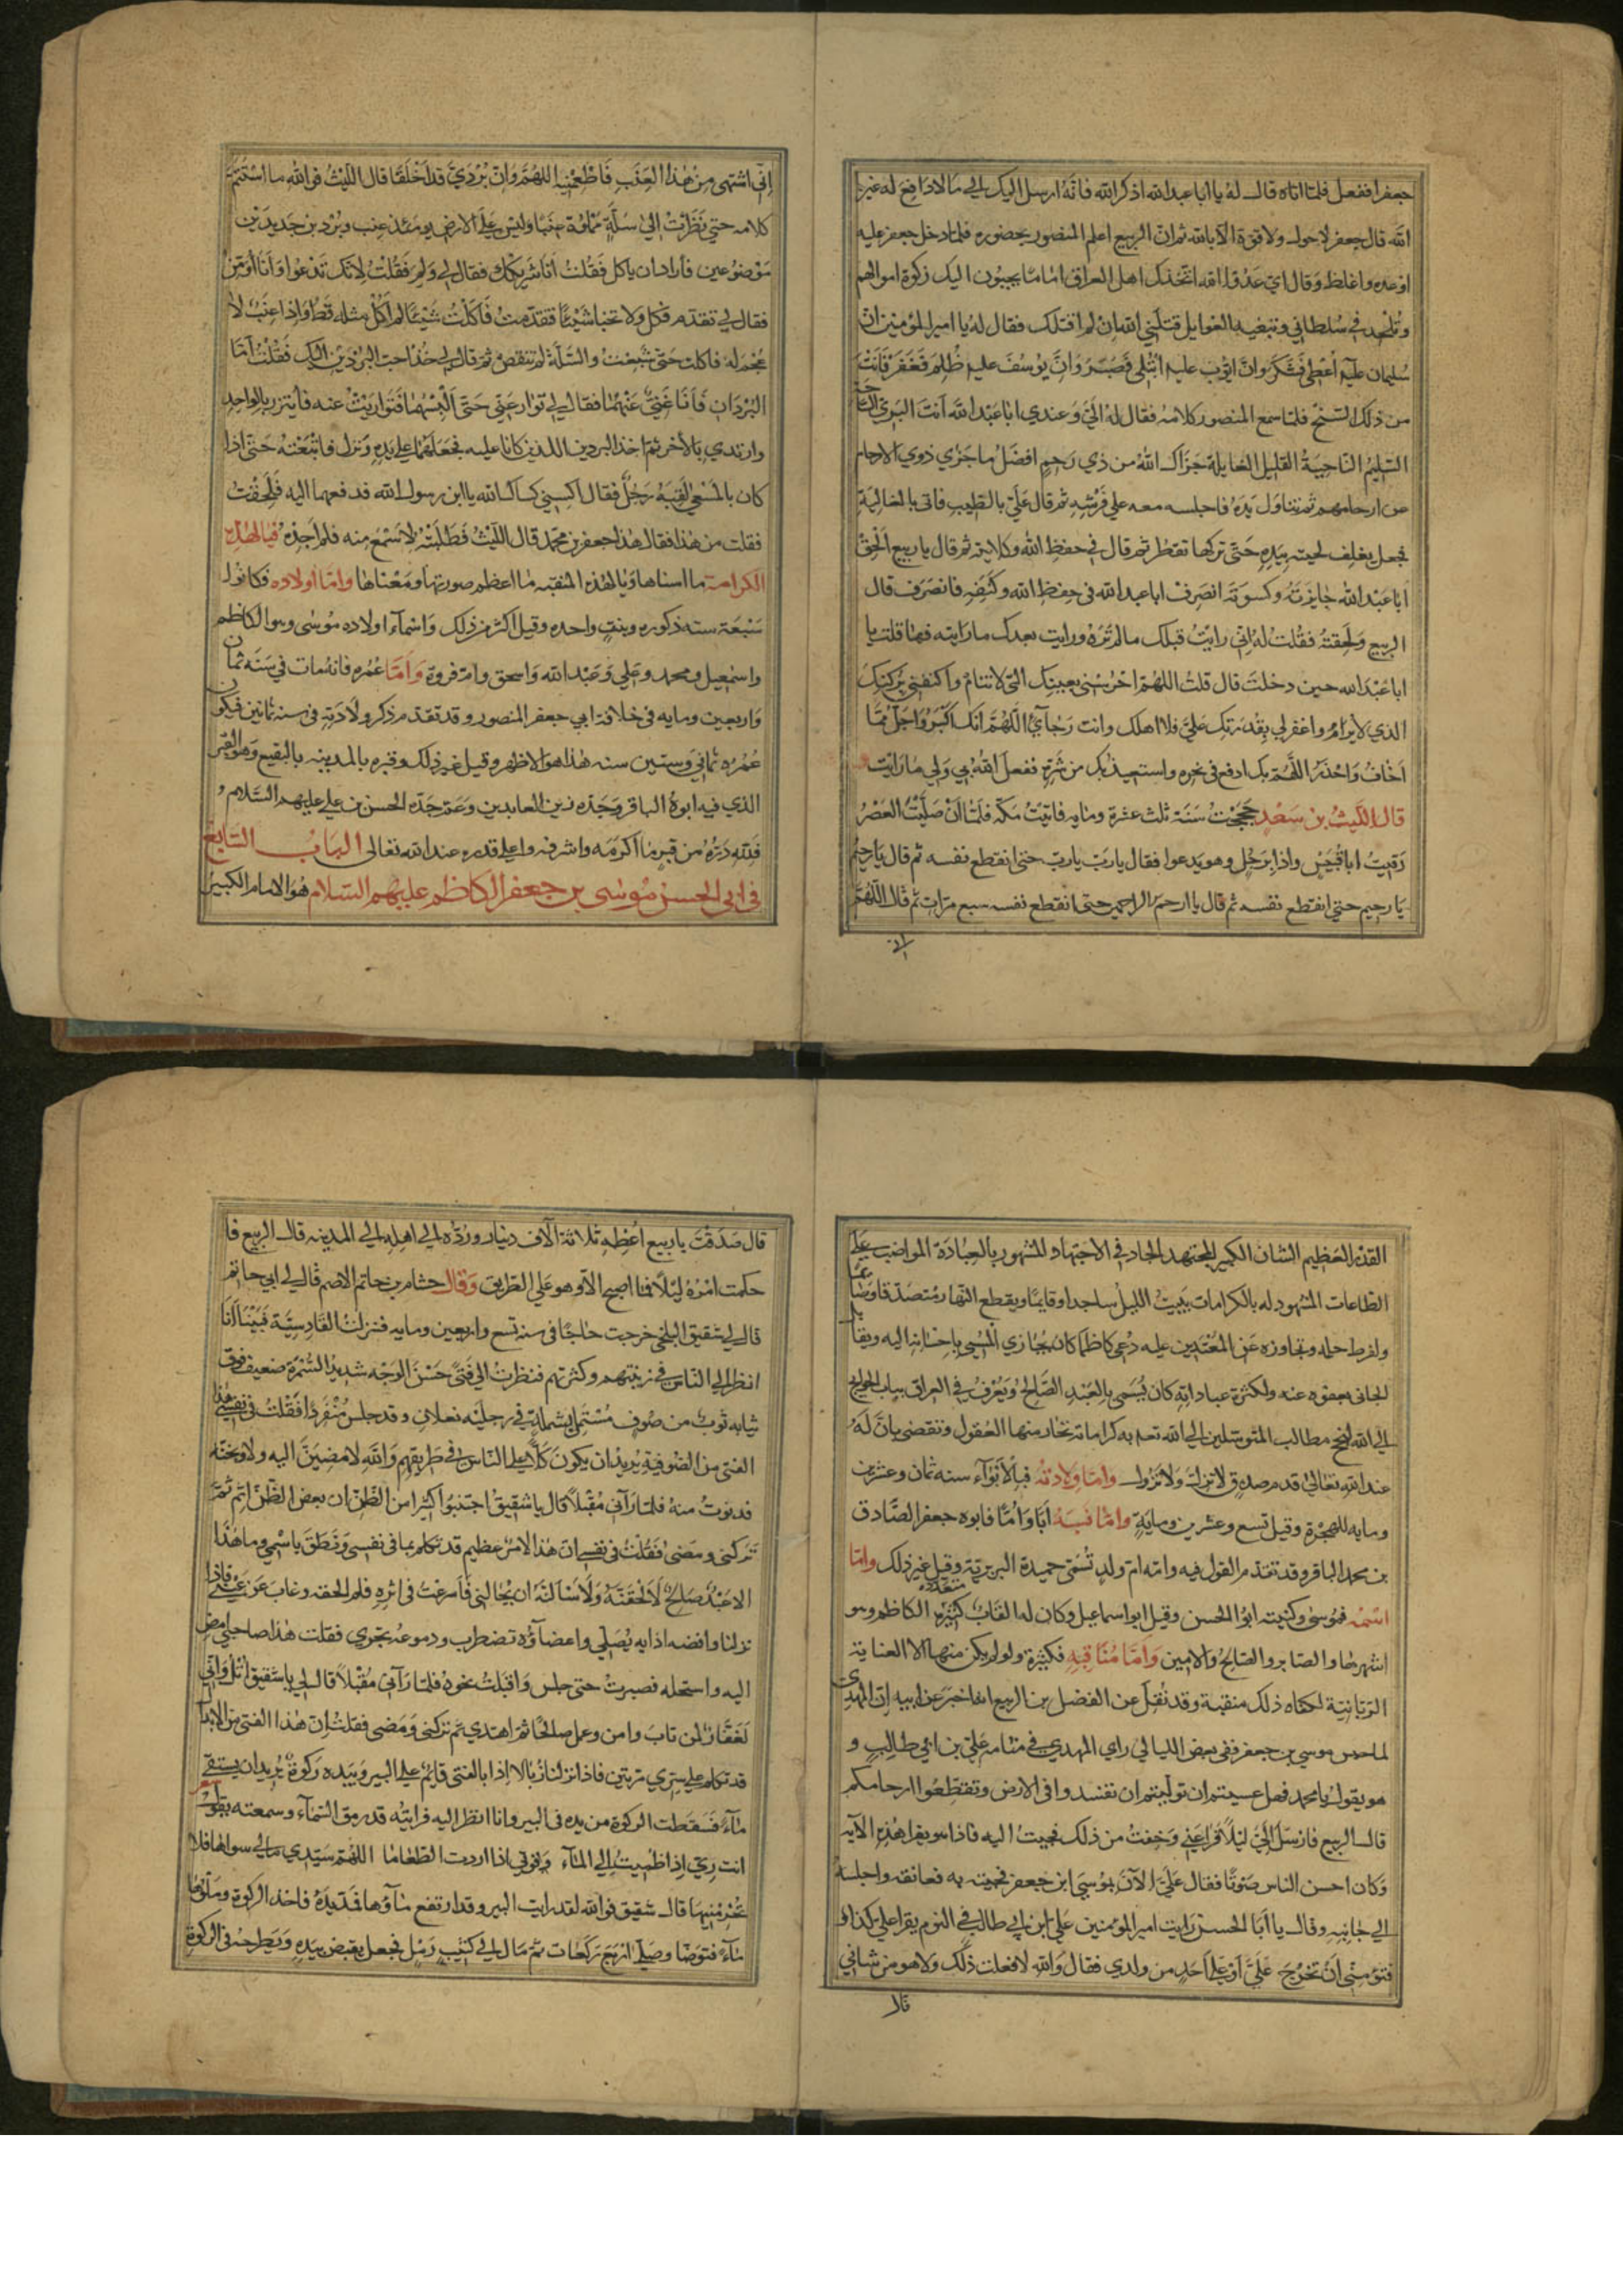 جعفرا ففعل فلما اتاه قال له يا ابا عبد الله اذكر الله فانه ارسل اليك الى ما لا دافع له غير
الله قال جعفر لا حول ولا قوة الا بالله ثم ان الربيع اعلم المنصور بحضوره فلما دخل جعفر عليه
اوعده واغلظ وقال اي عدو الله اتخذك اهل العراق اماما يجيبون اليك زكوة اموالهم
وتلحد في سلطاني وتبغيه الغوايل قتلني الله ان لم اقتلك فقال له يا امير المؤمنين ان
سليمان عليه اعطى فشكر وان ايوب عليه ابتلى فصبر وان يوسف عليه ظلم فغفر فانت
من ذلك السنخ فلما سمع المنصور كلامه فقال له الي وعندي ابا عبد الله انت البري الساحة
السليم الناحية القليل الغايلة جزاك الله من ذي رحم افضل ما جزي ذوي الارحام
عن ارحامهم ثم تناول يده فاجلسه معه علي فرشه ثم قال علي بالطيب فاتي بالغالية
فجعل يغلف لحيته بيده حتى تركها تقطر ثم قال في حفظ الله وكلايته ثم قال يا ربيع الحق
ابا عبد الله جايزته وكسوته انصرف ابا عبد الله في حفظ الله وكنفه فانصرف قال
الربيع ولحقته فقلت له اني رايت قبلك مالم تره ورايت بعدك ما رايته فما قلت يا
ابا عبد الله حين دخلت قال قلت اللهم احرسني بعينك التي لا تنام واكنفني بركنك
الذي لا يرام واغفر لي بقدرتك علي فلا اهلك وانت رجائي اللهم انك اكبر واجل مما
اخاف واحذر اللهم بك ادفع في نحره واستعيذ بك من شره ففعل الله بي ولي ما رايت
قال الليث بن سعد حججت سنة ثلث عشرة ومايه فاتيت مكة فلما ان صليت العصر
رقيت ابا قبيس واذا برجل وهو يدعوا فقال يا رب يا رب حتى انقطع نفسه ثم قال يا رحيم
يا رحيم حتى انقطع نفسه ثم قال يا ارحم الراحمين حتى انقطع نفسه سبع مرات ثم قال اللهم
اني
اني اشتهى من هذا العنب فاطعمنيه اللهم وان بردي قد اخلقا قال الليث فوالله ما استتم
كلامه حتى نظرت الى سلة مملوة عنبا وليس على الارض يومئذ عنب وبردين جديدين
موضوعين فاراد ان ياكل فقلت انا شريكك فقال لي ولم فقلت لانك تدعوا وانا اؤمن
فقال لي تقدم فكل ولا تخبا شيئا فتقدمت فاكلت شيئا لم اكل مثله قط واذا عنب لا
عجم له فاكلت حتى شبعت والسلة لم تنقص ثم قال لي خذ احب البردين اليك فقلت اما
البردان فانا غني عنهما فقال لي توار عني حتى البسهما فتواريت عنه فاتزر بالواحد
وارتدي بالاخر ثم اخذ البردين اللذين كانا عليه فجعلهما علي يده ونزل فاتبعته حتى اذا
كان بالمسعي لقيه رجل فقال اكسني كساك الله يا ابن رسول الله فدفعهما اليه فلحقت
فقلت من هذا فقال هذا جعفر بن محمد قال الليث فطلبته لاسمع منه فلم اجده فيا لهذه
الكرامة ما اسناها ويا لهذه المنقبه ما اعظم صورتها ومعناها واما اولاده فكانوا
سبعة سته ذكوره وبنت واحده وقيل اكثر من ذلك واسماء اولاده موسى وهو الكاظم
واسمعيل ومحمد وعلي وعبد الله واسحق وام فروة واما عمره فانه مات في سنة ثمان
واربعين ومايه في خلافة ابي جعفر المنصور وقد تقدم ذكر ولادته في سنه ثمانين فيكون
عمره ثماني وستين سنه هذا هو الاظهر وقيل غير ذلك وقبره بالمدينه بالبقيع وهو القبر
الذي فيه ابوه الباقر وجده زين العابدين وعم جده الحسن بن علي عليهم السلام
فلله دره من قبر ما اكرمه واشرفه واعلى قدره عند الله تعالى الباب السابع
في ابي الحسن موسى بن جعفر الكاظم عليهم السلام هو الامام الكبير
القدر العظيم الشان الكبير المجتهد الجاد في الاجتهاد المشهور بالعبادة المواضب على
الطاعات المشهود له بالكرامات يبيت الليل ساجدا وقايما ويقطع النهار متصدقا وصائما
ولفرط حلمه وتجاوزه عن المعتدين عليه دعي كاظما كان يجازي المسي باحسانه اليه ويقابل
الجاني بعفوه عنه ولكثرة عباداته كان يسمى بالعبد الصالح ويعرف في العراق بباب الحوايج
الي الله لنجح مطالب المتوسلين الي الله تعالى به كراماته تحار منها العقول وتقضي بان له
عند الله تعالى قدم صدق لا تزل ولا تزول واما ولادته فبالابواء سنه ثمان وعشرين
ومايه للهجرة وقيل تسع وعشرين وماية واما نسبه ابا واما فابوه جعفر الصادق
بن محمد الباقر وقد تقدم القول فيه وامه ام ولد تسمى حميدة البربرية وقيل غير ذلك واما
اسمه فموسى وكنيته ابو الحسن وقيل ابو اسماعيل وكان له القاب كثيرة متعددة الكاظم وهو
اشهرها والصابر والصالح والامين واما مناقبه فكثيرة ولو لم يكن منها الا العناية
الربانية لكفاه ذلك منقبة وقد نقل عن الفضل بن الربيع انه اخبر عن ابيه ان المهدي
لما حبس موسي بن جعفر ففي بعض الليالي راي المهدي في منامه علي بن ابي طالب و
هو يقول يا محمد فهل عسيتم ان توليتم ان تفسدوا في الارض وتقطعوا ارحامكم
قال الربيع فارسل الي ليلا فراعني وخفت من ذلك فجيت اليه فاذا هو يقرا هذه الآيه
وكان احسن الناس صوتا فقال علي الآن بموسى ابن جعفر فجيته به فعانقه واجلسه
الي جانبه وقال يا ابا الحسن رايت امير المؤمنين علي ابن ابي طالب في النوم يقرا علي كذا
فتؤمنني ان تخرج علي او علي احد من ولدي فقال والله لا فعلت ذلك ولا هو من شاني
قال
قال صدقت يا ربيع اعطه ثلاثة الآف دينار ورده الي اهله الي المدينه قال الربيع فا
حكمت امره ليلا فما اصبح الا وهو علي الطريق وقال حشام بن حاتم الاصم قال لي ابي حاتم
قال لي شقيق البلخي خرجت حاجا في سنه تسع واربعين ومايه فنزلت القادسية فبينا انا
انظر الي الناس في زينتهم وكثرتهم فنظرت الي فتى حسن الوجه شديد السمرة ضعيف فوق
ثيابه ثوب من صوف مشتمل بشملة في رجليه نعلان وقد جلس منفردا فقلت في نفسي هذا
الفتى من الصوفية يريد ان يكون كلا علي الناس في طريقهم والله لامضين اليه ولاوبخنه
فدنوت منه فلما رآني مقبلا قال يا شقيق اجتنبوا كثيرا من الظن ان بعض الظن اثم ثم
تركني ومضى فقلت في نفسي ان هذا الامر عظيم قد تكلم بما في نفسي ونطق باسمي وما هذا
الا عبد صالح لالحقنه ولاسالنه ان يخالني فاسرعت في اثره فلم الحقه وغاب عن عيني فلما
نزلنا واقصه اذا به يصلي واعضاؤه تضطرب ودموعه تجري فقلت هذا صاحبي امض
اليه واستحله فصبرت حتى جلس واقبلت نحوه فلما رآني مقبلا قال لي يا شقيق اتل واني
لغفار لمن تاب وامن وعمل صالحا ثم اهتدي ثم تركني ومضى فقلت ان هذا الفتى من الابدال
قد تكلم علي سري مرتين فاذا نزلنا زبالا اذا بالفتى قايم علي البير وبيده ركوة يريد ان يستقي
ماء فسقطت الركوة من يده في البير وانا انظر اليه فرايته قد رمق السماء وسمعته يقول
انت ربي اذا ظميت الي الماء وقوتي اذا اردت الطعاما اللهم سيدي مالي سواها فلا
تحرمنيها قال شقيق فوالله لقد رايت البير وقد ارتفع ماؤها فمد يده فاخذ الركوة وملؤها
ماء فتوضا وصلى اربع ركعات ثم مال الي كثيب رمل فجعل يقبض بيده ويطرحه في الركوة